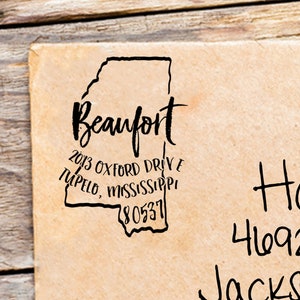 Beaufort
2013 OXFORD DRIVE
TUPELO, MISSISSIPPI
80537
4692
Jacks